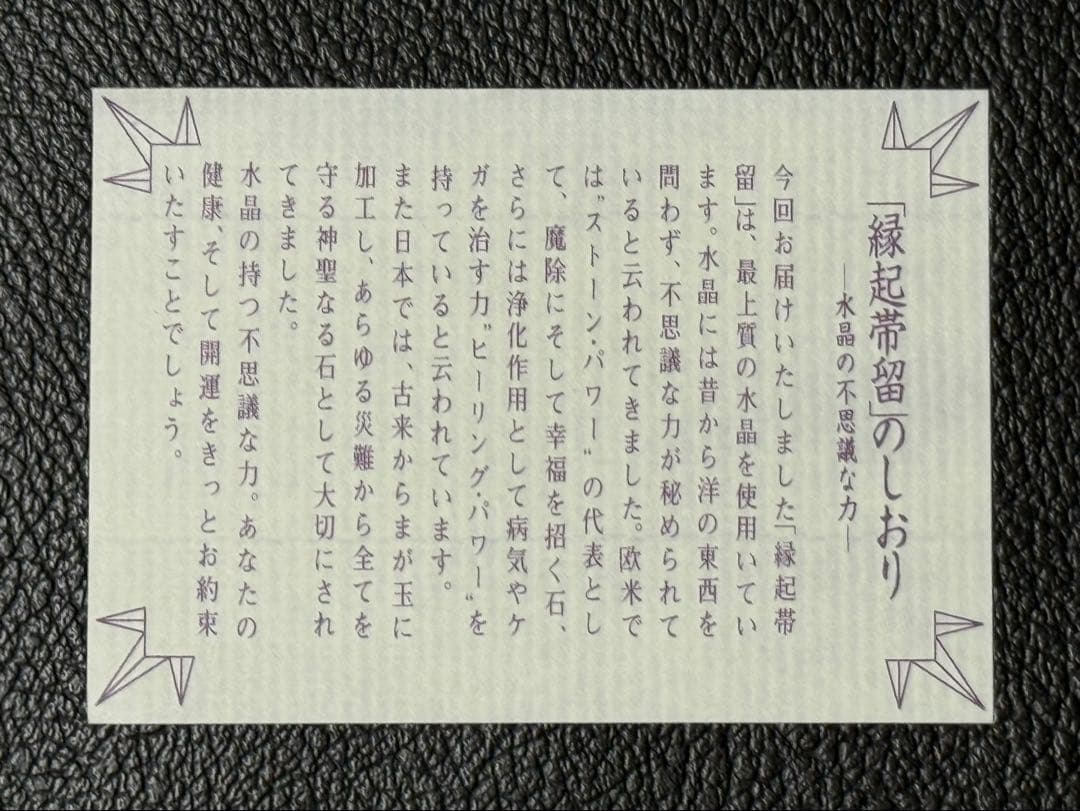 「縁起帯留」のしおり
―水晶の不思議な力―
今回お届けいたしました「縁起帯
留」は、最上質の水晶を使用いてい
ます。水晶には昔から洋の東西を
問わず、不思議な力が秘められて
いると云われてきました。欧米で
は〝ストーン・パワー〟の代表とし
て、魔除にそして幸福を招く石、
さらには浄化作用として病気やケ
ガを治す力〝ヒーリング・パワー〟を
持っていると云われています。
また日本では、古来からまが玉に
加工し、あらゆる災難から全てを
守る神聖なる石として大切にされ
てきました。
水晶の持つ不思議な力。あなたの
健康、そして開運をきっとお約束
いたすことでしょう。